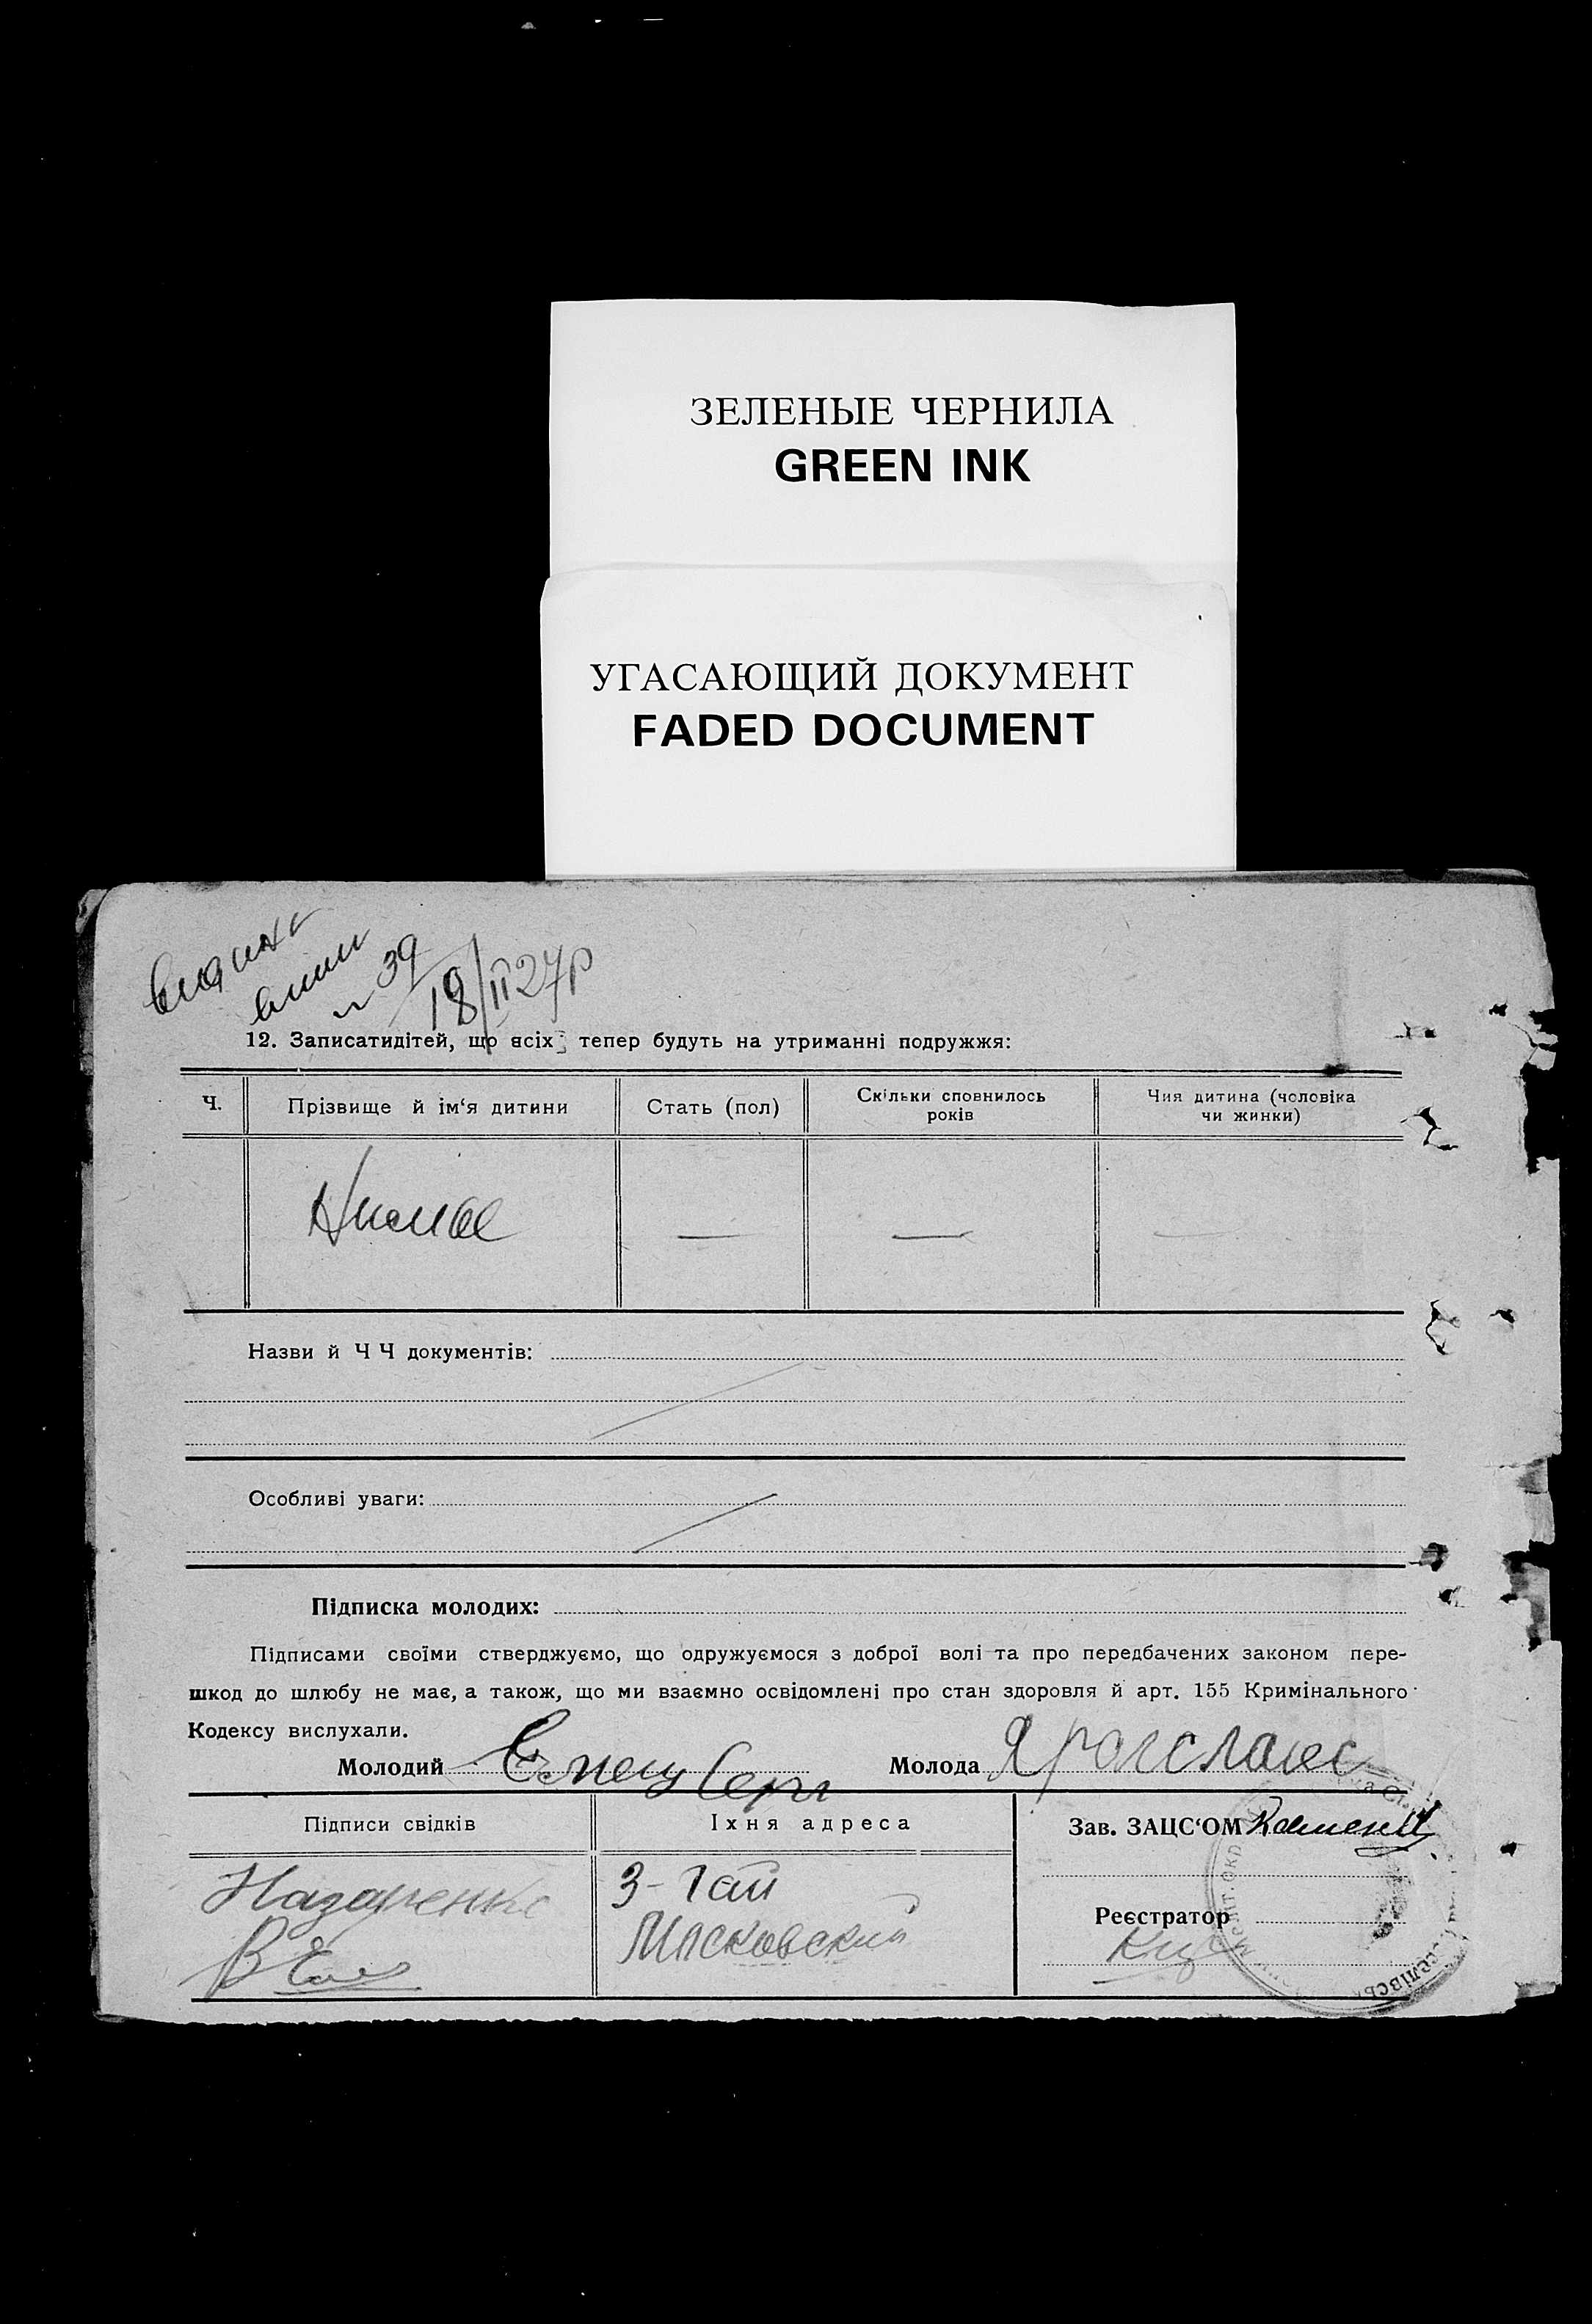 ЗЕЛЕНЫЕ ЧЕРНИЛА
GREEN INK
УГАСАЮЩИЙ ДОКУМЕНТ
FADED DOCUMENT
39
18/II 27р
12. Записатидітей, що всіх тепер будуть на утриманні подружжя:
Ч.
Прізвище й ім‘я дитини
Стать (пол)
Скільки сповнилось
років
Чия дитина (чоловіка
чи жинки)
Назви й Ч Ч документів:
Особливі уваги:
Підписка молодих:
Підписами своїми стверджуємо, що одружуємося з доброї волі та про передбачених законом пере-
шкод до шлюбу не має, а також, що ми взаємно освідомлені про стан здоровля й арт. 155 Кримінального
Кодексу вислухали.
Молодий Емец
Молода
Підписи свідків
Їхня адреса
Зав. ЗАЦС‘ОМ
Назаренко
3-Гай
Московский
Реєстратор